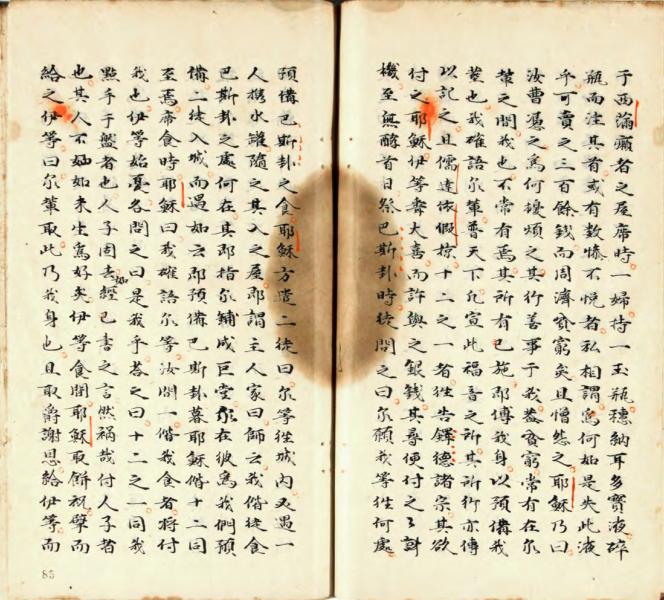 于西滿癩者之屋席時一婦持一玉瓶穗納耳多寶液碎
瓶而注其首或有數慘不悅者私相謂為何如是失此液
乎可賣之三百餘錢而周濟貧窮矣且憎然之耶穌乃曰
汝曹憑之為何擾煩之其行善事于我蓋貧窮常有在尔
輩之間我也不常有焉其所有已施即傅我身以預備我
塟也我確語尔輩普天下凢宣此福音之所其所行亦傳
以記之且儒達依假掠十二之一者徃告鐸德諸宗其欲
付之耶穌伊等齊大喜而許與之銀錢其尋便付之之計
機至無酵首日祭巴斯卦時徒問之曰尔願我等徃何處
預備巴斯卦之食耶穌方遣二徒曰尔等徃城內又遇一
人携水罐隨之其入之屋即謂主人家曰師云我偕徒食
巴斯卦之處何在其即指尔鋪成巨堂尔在彼為我們預
備二徒入城而遇如云即預備巴斯卦暮耶穌偕十二同
至焉席食時耶穌曰我確語尔等汝間一偕我食者將付
我也伊等始憂各問之曰是我乎荅之曰十二之一同我
㸃手于盤者也人子固去如經已書之言然禍哉付人子者
也其人不如未生為好矣伊等食間耶穌取餅祝擘而
給之伊等曰尔輩取此乃我身也且取爵謝恩給伊等而
85